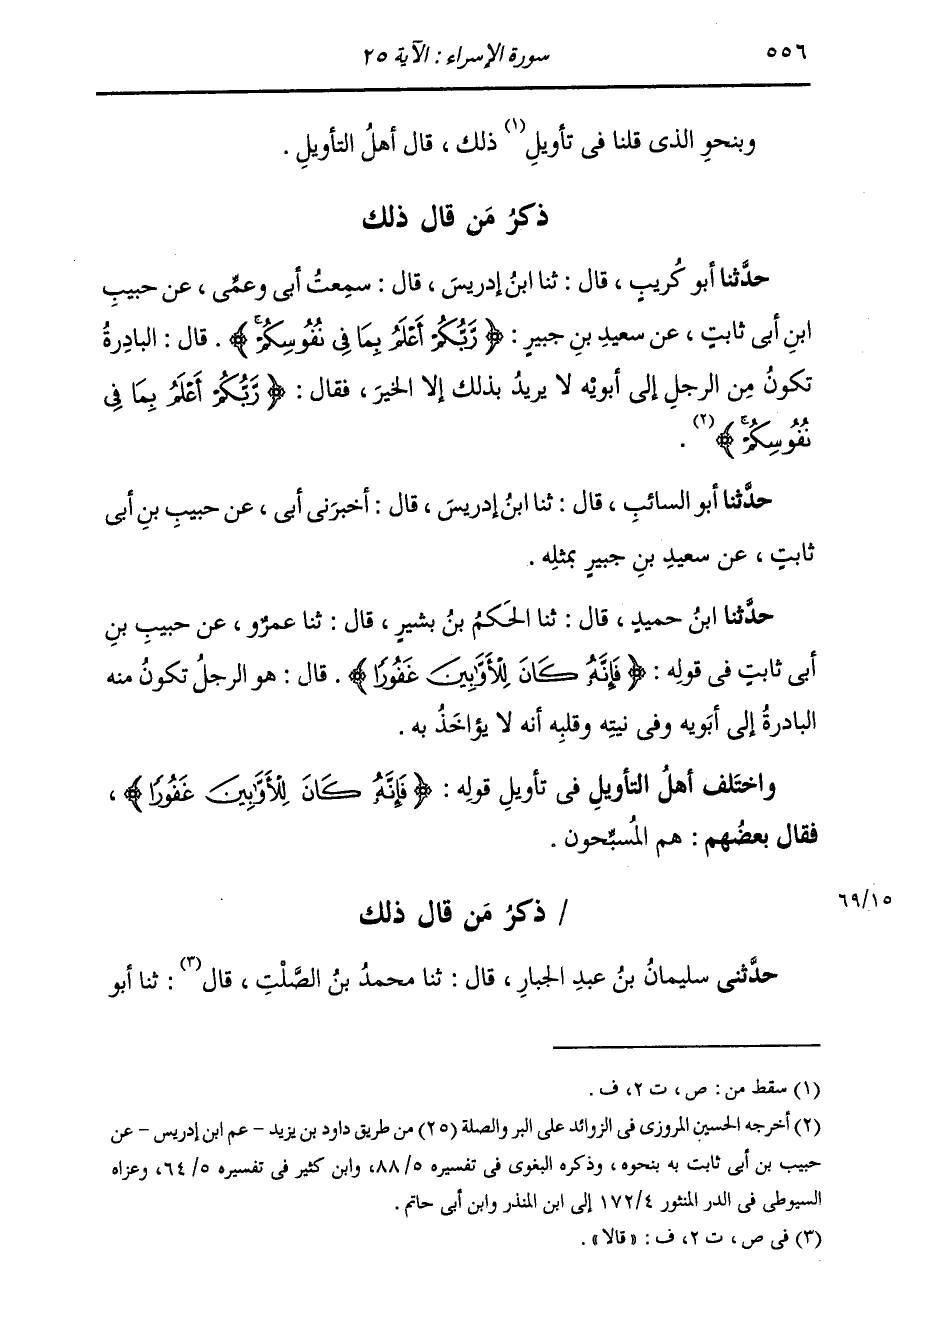 ٥٥٦
سورة الإسراء : الآية ٢٥
وبنحوِ الذى قلنا فى تأويلِ(١) ذلك ، قال أهلُ التأويلِ .
ذكرُ مَن قال ذلك
حدَّثنا أبو كُريبٍ ، قال : ثنا ابنُ إدريسَ ، قال : سمِعتُ أبى وعمِّى ، عن حبيبِ
ابنِ أبى ثابتٍ ، عن سعيدِ بنِ جبيرٍ : ﴿ رَّبُّكُمْ أَعْلَمُ بِمَا فِى نُفُوسِكُمْ ۚ ﴾ . قال : البادِرةُ
تكونُ مِن الرجلِ إلى أبويْه لا يريدُ بذلك إلا الخيرَ ، فقال : ﴿ رَّبُّكُمْ أَعْلَمُ بِمَا فِى
نُفُوسِكُمْ ۚ ﴾(٢) .
حدَّثنا أبو السائبِ ، قال : ثنا ابنُ إدريسَ ، قال : أخبرَنى أبى ، عن حبيبِ بنِ أبى
ثابتٍ ، عن سعيدِ بنِ جبيرٍ بمثلِه .
حدَّثنا ابنُ حميدٍ ، قال : ثنا الحَكمُ بنُ بشيرٍ ، قال : ثنا عمرٌو ، عن حبيبِ بنِ
أبى ثابتٍ فى قولِه : ﴿ فَإِنَّهُۥ كَانَ لِلْأَوَّٰبِينَ غَفُورًا ﴾ . قال : هو الرجلُ تكونُ منه
البادرةُ إلى أبَويه وفى نيتِه وقلبِه أنه لا يؤاخَذُ به .
واختَلف أهلُ التأويلِ فى تأويلِ قولِه : ﴿ فَإِنَّهُۥ كَانَ لِلْأَوَّٰبِينَ غَفُورًا ﴾ ،
فقال بعضُهم : هم المُسبِّحون .
٦٩/١٥
/ ذكرُ مَن قال ذلك
حدَّثنى سليمانُ بنُ عبدِ الجبارِ ، قال : ثنا محمدُ بنُ الصَّلْتِ ، قال(٣) : ثنا أبو
(١) سقط من : ص ، ت ٢، ف .
(٢) أخرجه الحسين المروزى فى الزوائد على البر والصلة (٢٥) من طريق داود بن يزيد – عم ابن إدريس – عن
حبيب بن أبى ثابت به بنحوه ، وذكره البغوى فى تفسيره ٥/ ٨٨، وابن كثير فى تفسيره ٥/ ٦٤، وعزاه
السيوطى فى الدر المنثور ١٧٢/٤ إلى ابن المنذر وابن أبى حاتم .
(٣) فى ص ، ت ٢، ف : « قالا » .